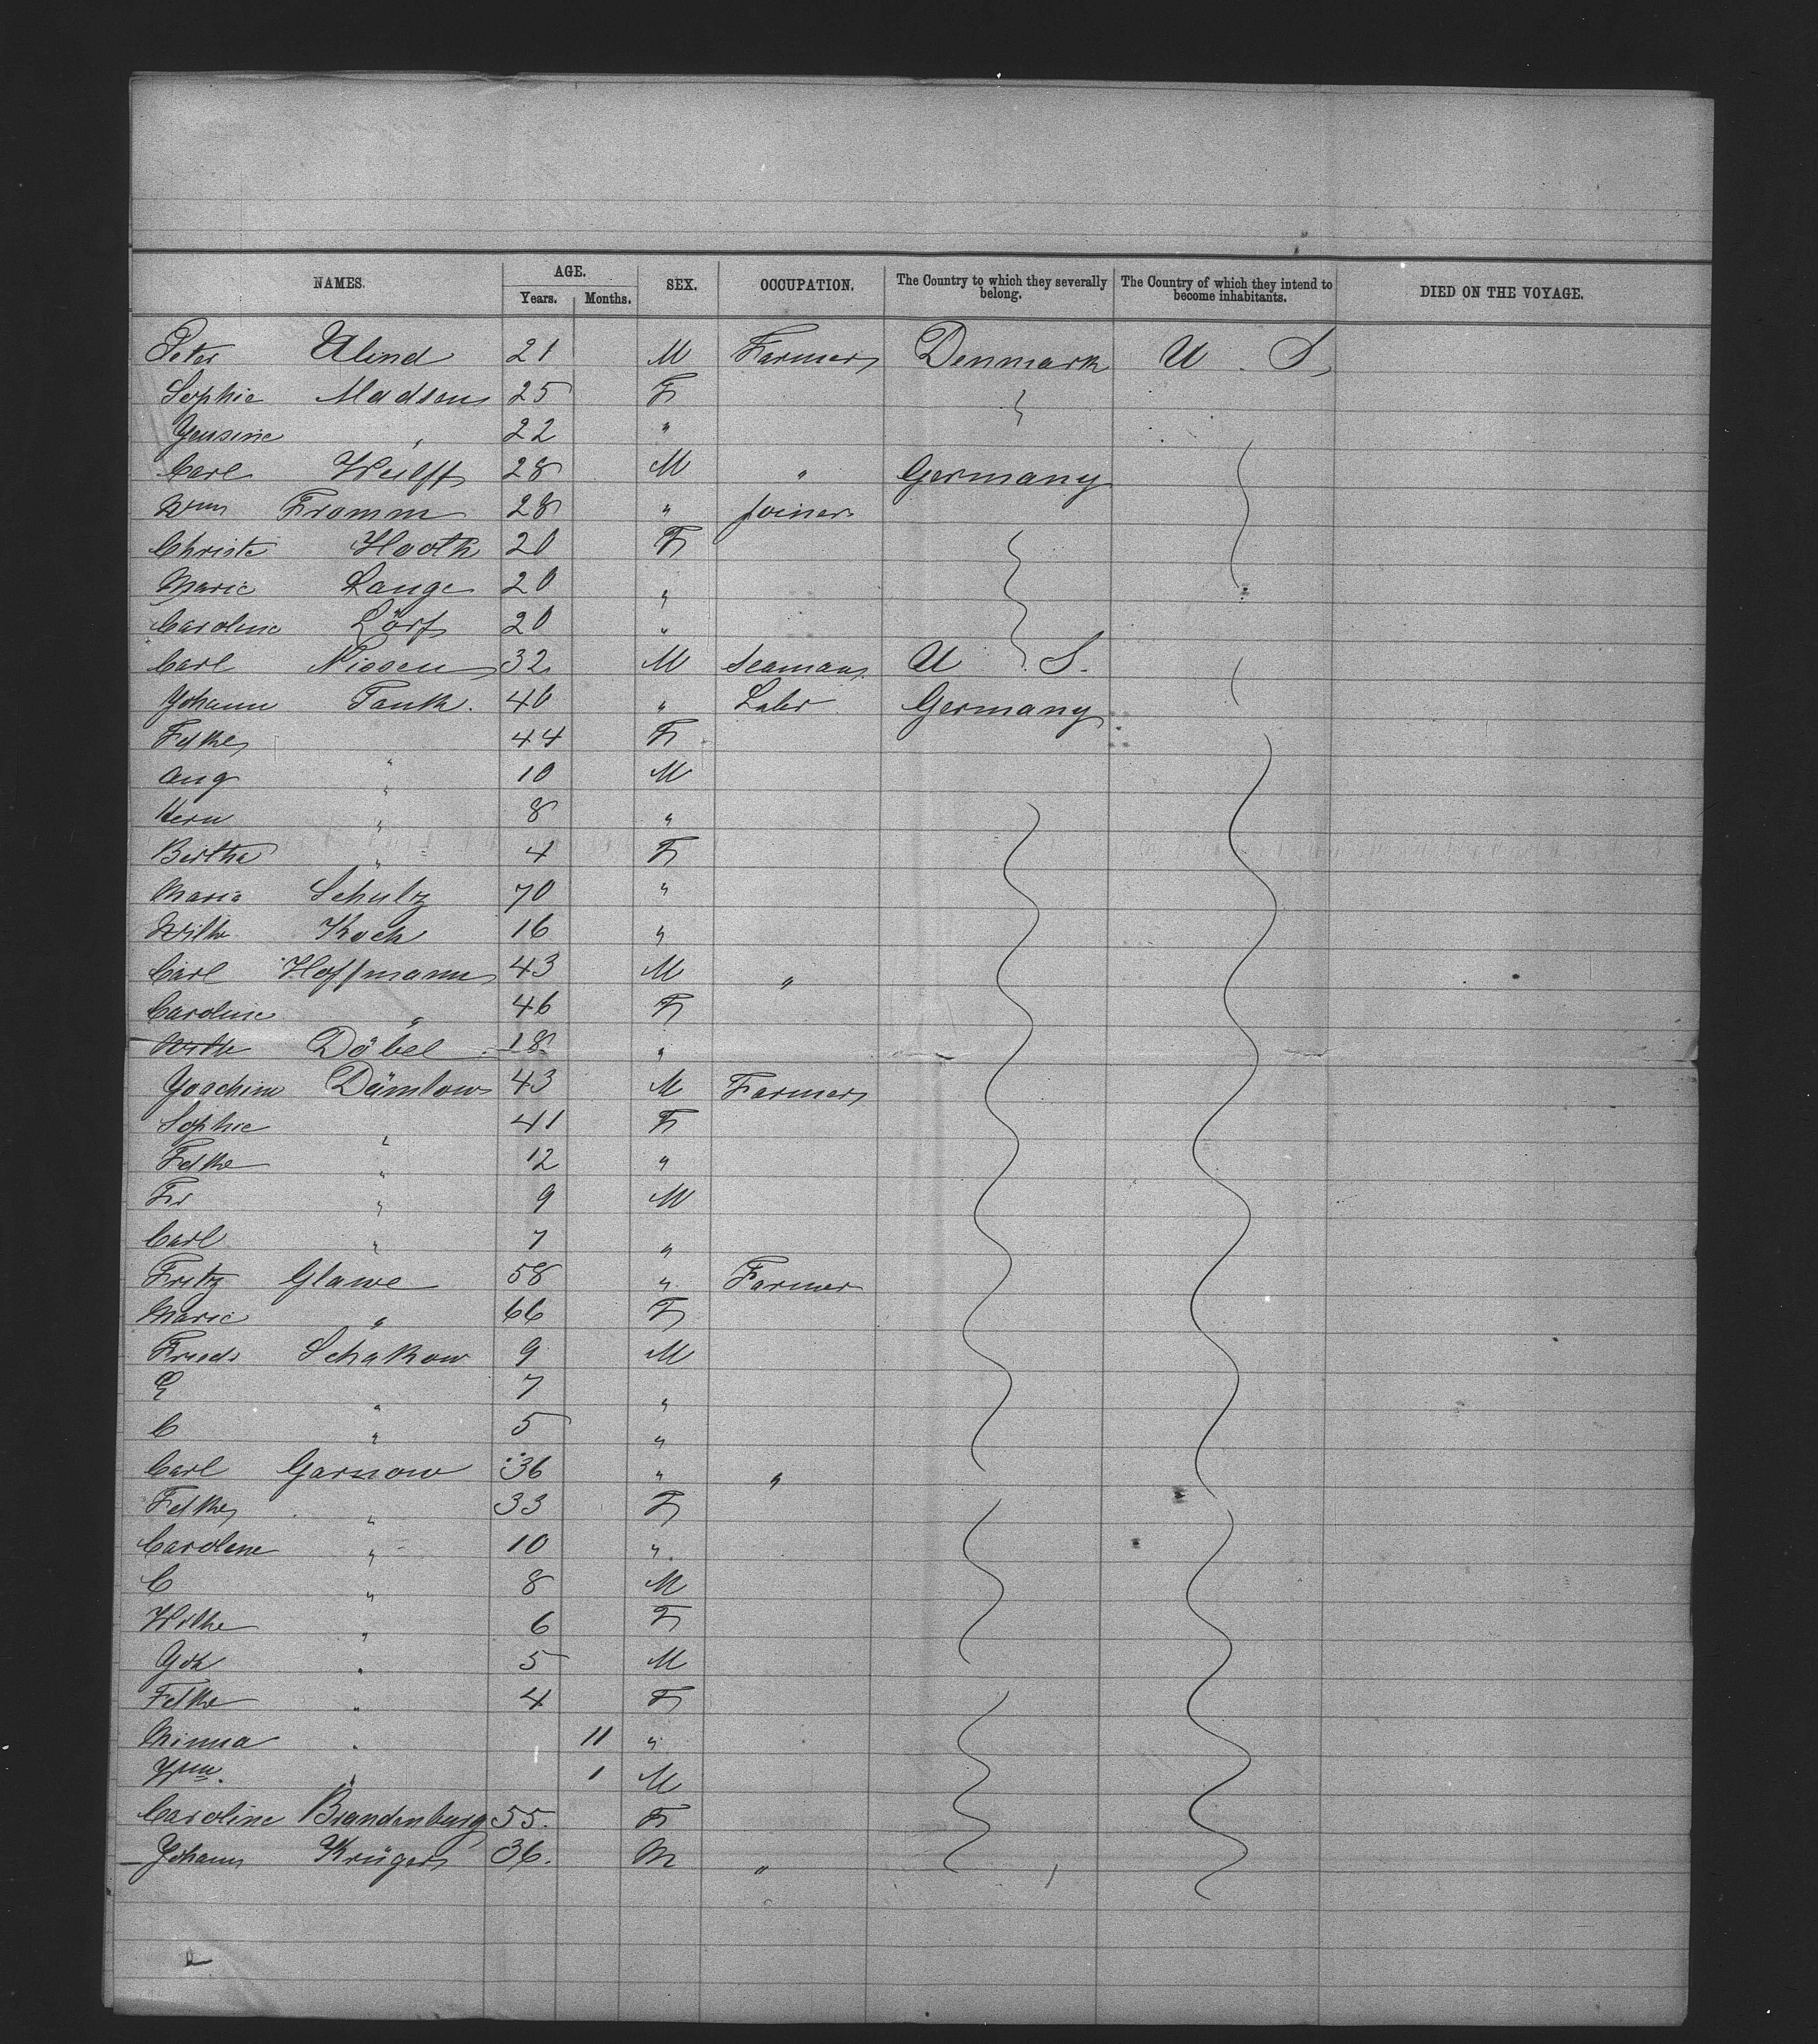 NAMES. AGE. Years. Months. SEX. OCCUPATION. The Country to which they severally belong. The Country of which they intend to become inhabitants. DIED ON THE VOYAGE.
Peter Ulind 21 M Farmer Denmark U. S.
Sophie Madsen 25 F
Jensine " 22 "
Carl Weilff 28 M " Germany
Wm Fromm 28 " Joiner
Christe Hooth 20 F
Marie Lange 20 "
Caroline Lörf 20 "
Carl Nissen 32 M Seaman U S.
Johann Tank. 40 " Labr Germany
Fdke " 44 F
Aug " 10 M
Hern " 8 "
Bertha " 4 F
Maria Schultz 70 "
Wilh Koch 16 "
Carl Hoffmann 43 M "
Caroline " 46 F
Wilh Döbel 18 "
Joachim Dämlow 43 M Farmer
Sophie " 41 F
Fdke " 12 "
Fr " 9 M
Carl " 7 "
Fritz Glawe 58 " Farmer
Marie " 66 F
Friedr Schakow 9 M
E " 7 "
C " 5 "
Carl Garnow 36 " "
Fdke " 33 F
Caroline " 10 "
C " 8 M
Wilhe " 6 F
Joh " 5 M
Fdke " 4 F
Minna " 11 "
Wm. " 1 M
Caroline Brandenburg 55. F
Johann Krüger 36. M "